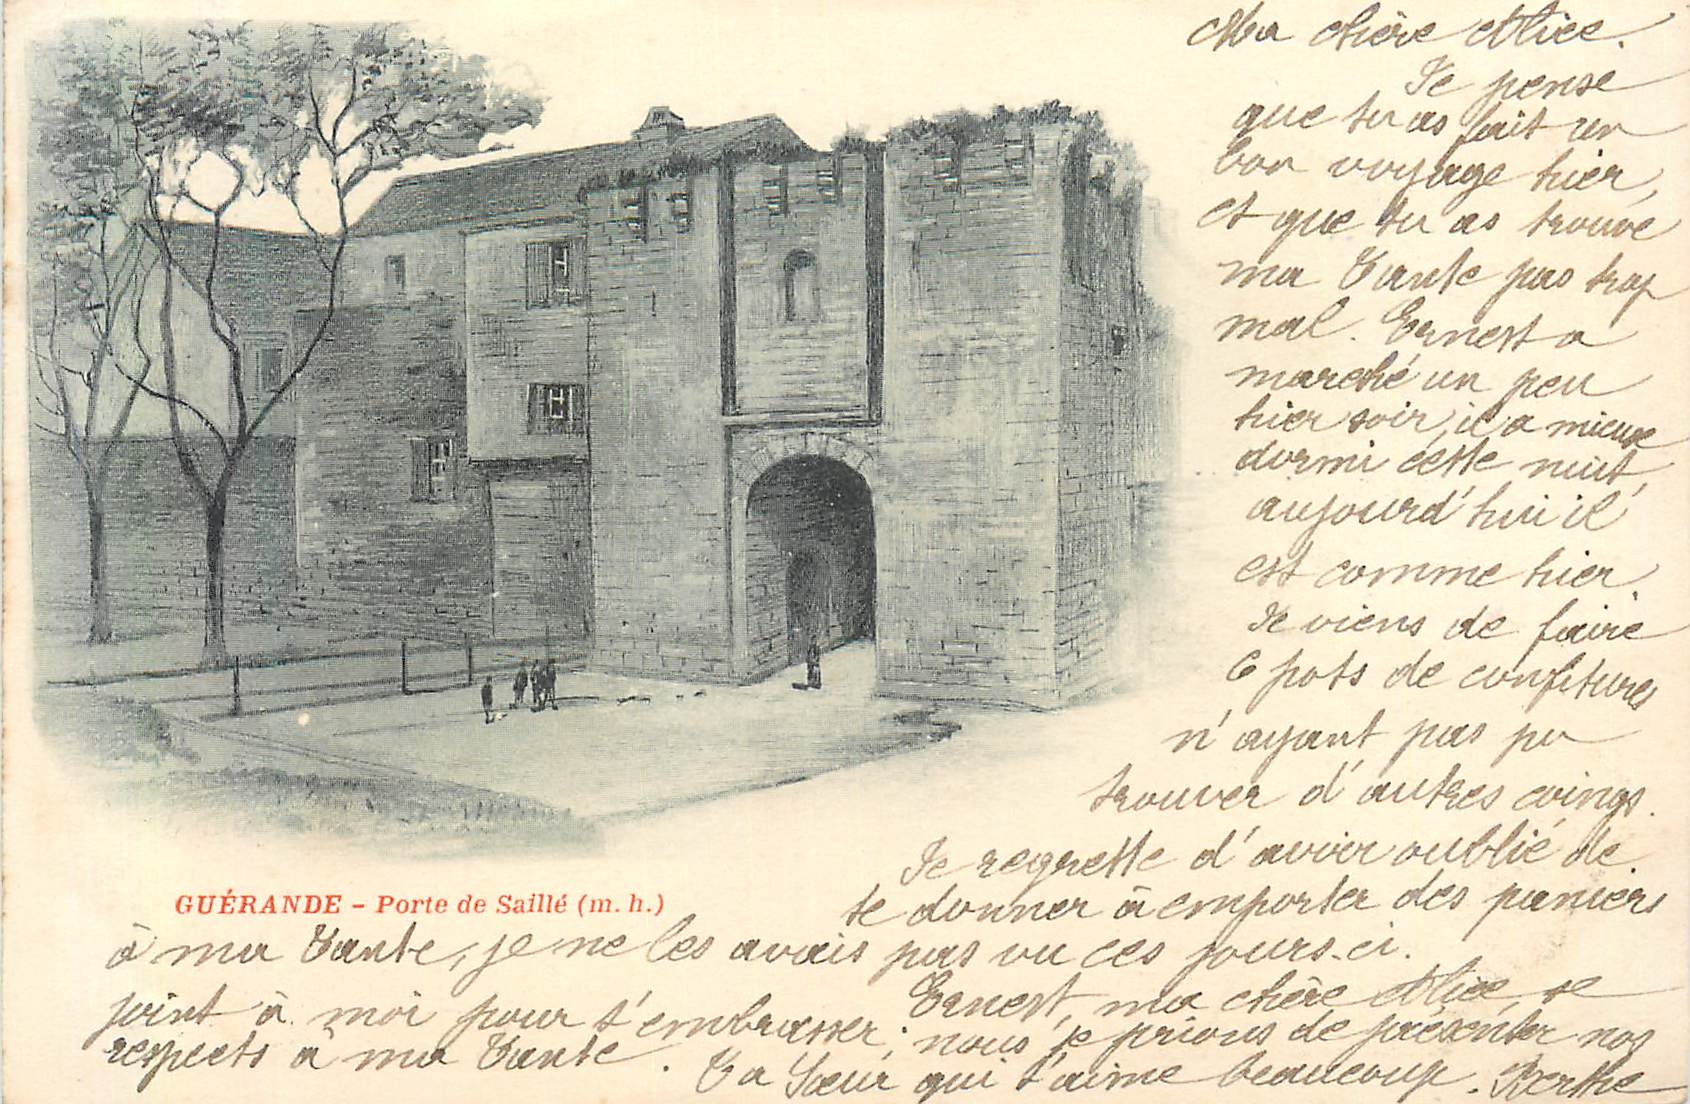 Ma chère Alice.
Je pense
que tu as fait un
bon voyage hier,
et que tu as trouvé
ma Tante pas trop
mal. Ernest a
marché un peu
hier soir, il a mieux
dormi cette nuit,
aujourd'hui il
est comme hier.
Je viens de faire
6 pots de confitures
n'ayant pas pu
trouver d'autres coings.
Je regrette d'avoir oublié de
te donner à emporter des paniers
à ma Tante, je ne les avais pas vu ces jours-ci.
Ernest, ma chère Alice, se
joint à moi pour t'embrasser; nous te prions de présenter nos
respects à ma Tante. Ta Sœur qui t'aime beaucoup. Berthe
GUÉRANDE - Porte de Saillé (m. h.)